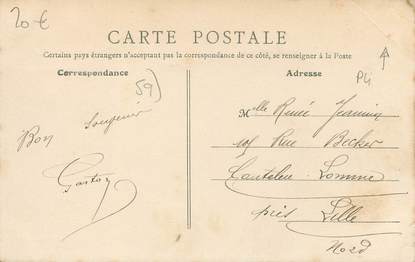 20 €
CARTE POSTALE
Certains pays étrangers n'acceptant pas la correspondance de ce côté, se renseigner à la Poste
Correspondance
59)
Bon Souvenir
Gaston
Adresse
Pli
Mlle Renée Jeannin
105 Rue Becker
Canteleu Lomme
près Lille
Nord